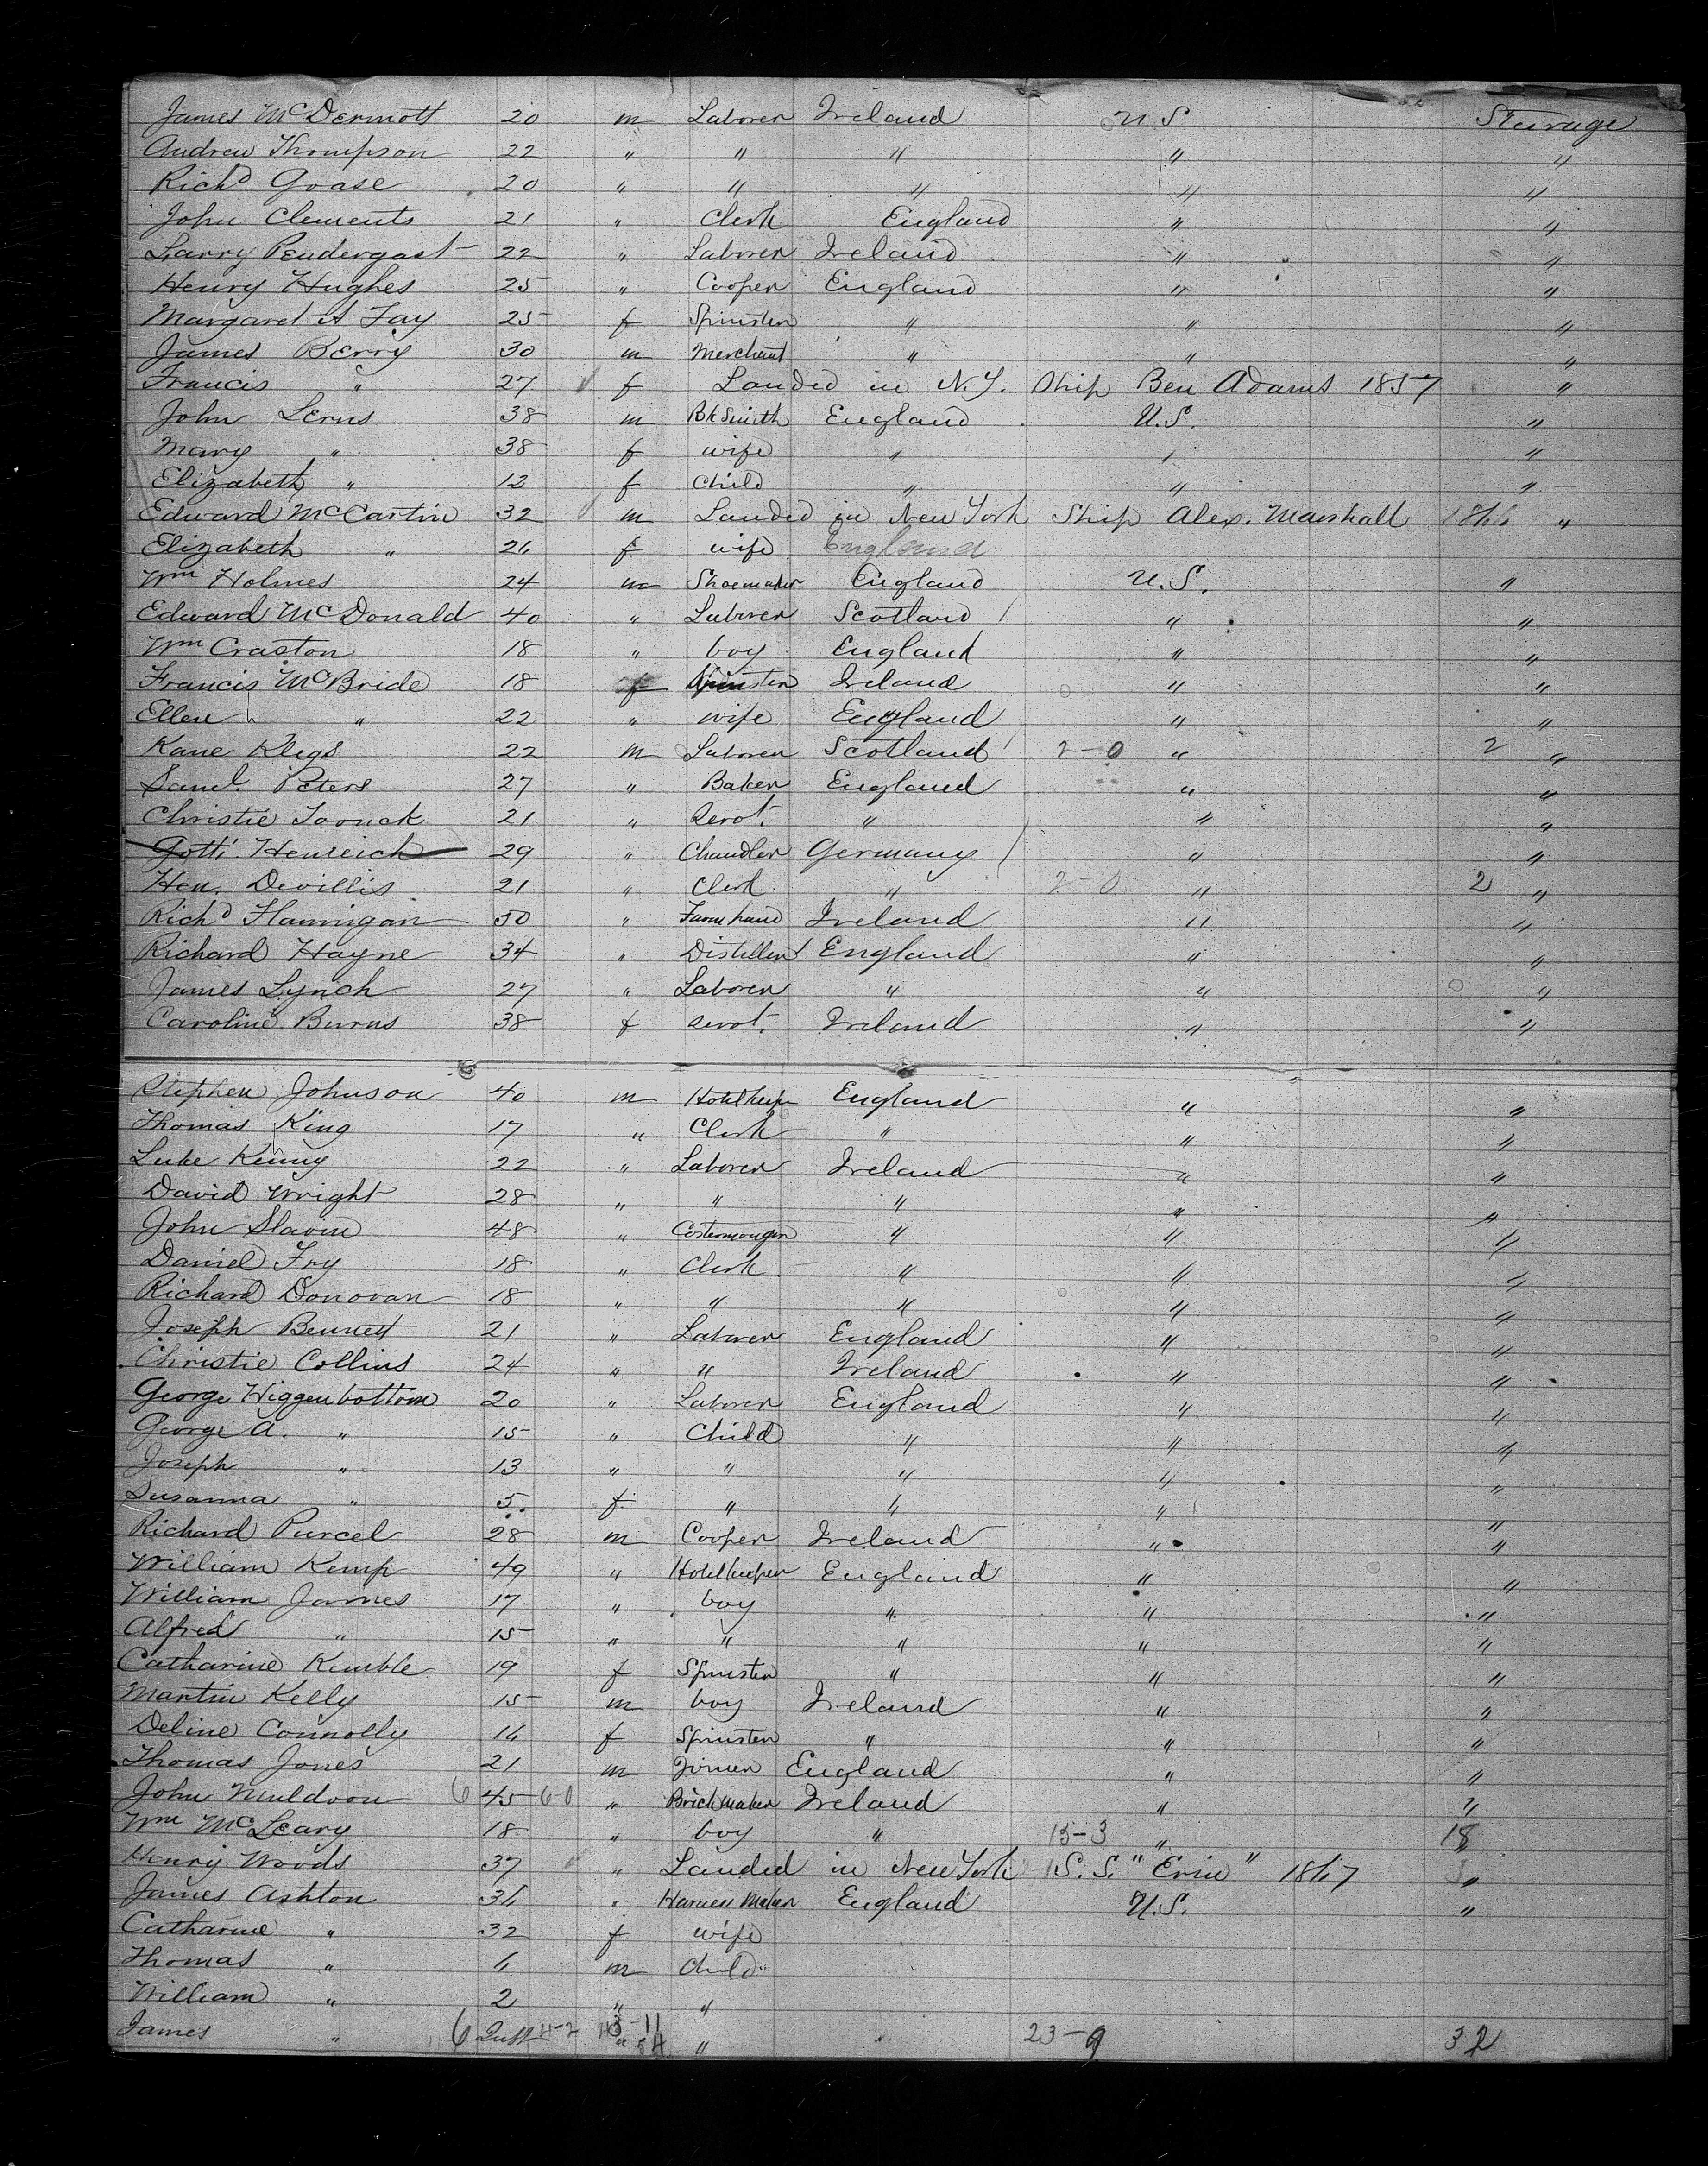 James McDermott 20 m Laborer Ireland U S Steerage
Andrew Thompson 22 " " " " "
Richd Goase 20 " " " " "
John Clements 21 " Clerk England " "
Larry Pendergast 22 " Laborer Ireland " "
Henry Hughes 25 " Cooper England " "
Margaret A Fay 25 f Spinster " " "
James Berry 30 m Merchant " " "
Francis " 27 f Landed in N.Y. Ship Ben Adams 1857 "
John Lerns 38 m Bk Smith England U.S. "
Mary " 38 f wife " " "
Elizabeth " 12 f Child " " "
Edward McCartin 32 m Landed in New York Ship Alex. Marshall 1866 "
Elizabeth " 26 f wife England
Wm Holmes 24 m Shoemaker England U.S. "
Edward McDonald 40 " Laborer Scotland / " "
Wm Craston 18 " boy England " "
Francis McBride 18 f Spinster Ireland " "
Ellen " 22 " wife England " "
Kane 22 m Laborer Scotland / 2-0 " 2 "
Saml. Peters 27 " Baker England " "
Christie 21 " Servt. " " "
Gotti. Henreich 29 " Chandler Germany / " "
Hen. Devillis 21 " Clerk " 2-0 " 2 "
Richd Flannigan 50 " Farm hand Ireland " "
Richard Hayne 34 " Distiller England " "
James Lynch 27 " Laborer " " "
Caroline Burns 38 f servt. Ireland " "
Stephen Johnson 40 m Hotelkeeper England " "
Thomas King 17 " Clerk " " "
Luke Kenny 22 " Laborer Ireland " "
David Wright 28 " " " " "
John Slavin 48 " Costermonger " " "
Daniel Fry 18 " Clerk " " "
Richard Donovan 18 " " " " "
Joseph Bennett 21 " Laborer England " "
Christie Collins 24 " " Ireland " "
George Higgenbottom 20 " Laborer England " "
George A. " 15 " Child " " "
Joseph " 13 " " " " "
Susanna " 5. f " " " "
Richard Purcel 28 m Cooper Ireland " "
William Kemp 49 " Hotelkeeper England " "
William James 17 " boy " " "
Alfred " 15 " " " " "
Catharine Kemble 19 f Spinster " " "
Martin Kelly 15 m boy Ireland " "
Deline Connolly 16 f Spinster " " "
Thomas Jones 21 m Joiner England " "
John Muldoon 6 45 6-0 " Brickmaker Ireland " "
Wm McLeary 18 " boy " 15-3 " 18 "
Henry Woods 37 " Landed in New York S.S. "Erin" 1867 "
James Ashton 36 " Harness Maker England U.S. "
Catharine " 32 f wife
Thomas " 6 m Child
William " 2 " "
James " 6 Inft 4-2 " " 23-9 32